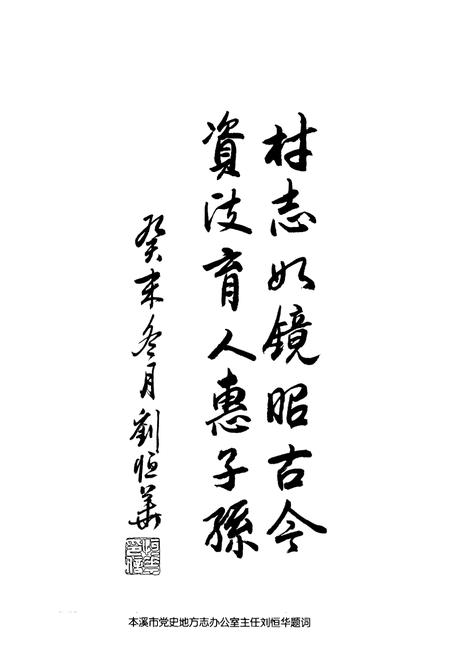 村志如鏡昭古今
資政育人惠子孫
癸未冬月劉恒華
本溪市党史地方志办公室主任刘恒华题词